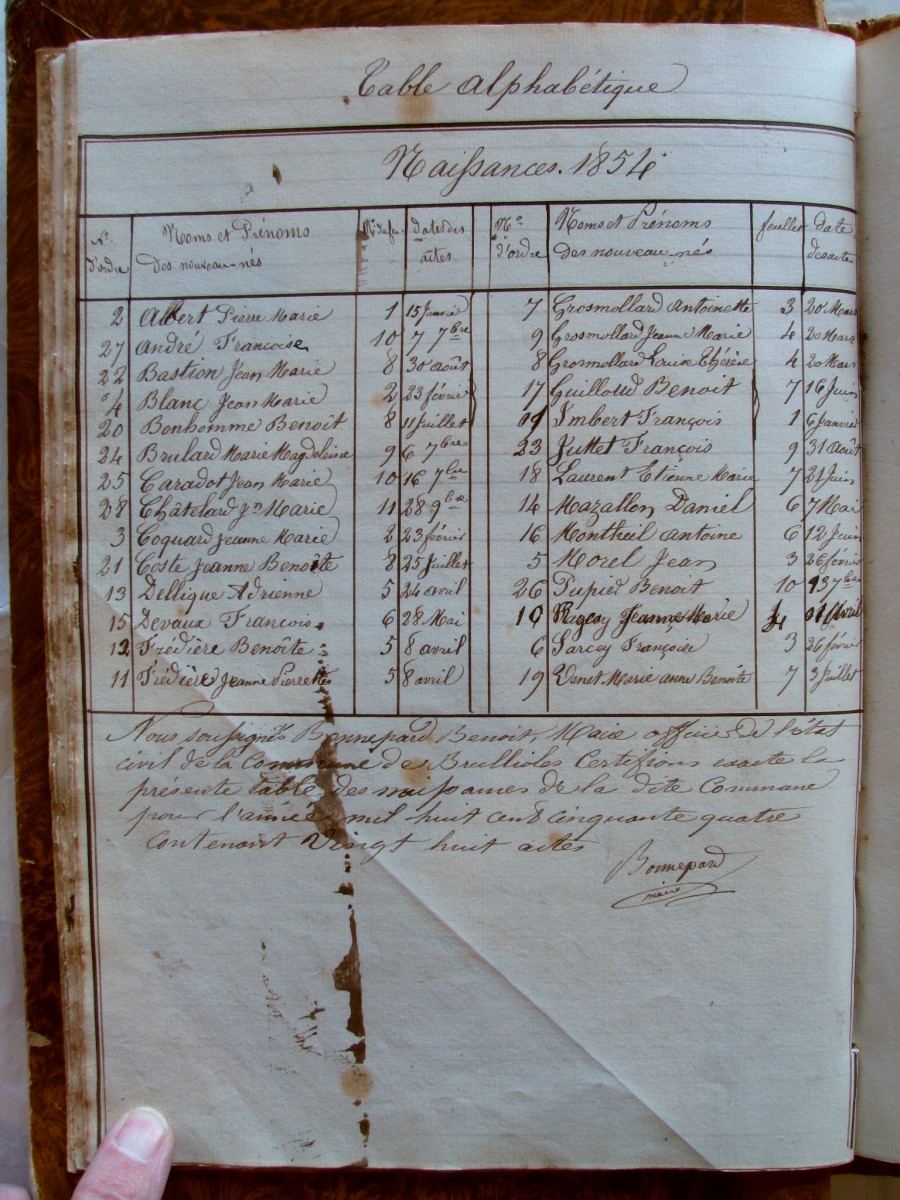 Table alphabétique
Naissances. 1854
N° d'ordre Noms et Prénoms des nouveau-nés N° de fe dates des actes
2 Albert Pierre Marie 1 15 Janvier
27 André Françoise 10 7 7bre
22 Bastion Jean Marie 8 30 août
4 Blanc Jean Marie 2 23 février
20 Bonhomme Benoît 8 11 Juillet
24 Brulard Marie Magdeleine 9 6 7bre
25 Caradot Jean Marie 10 16 7bre
28 Châtelard Jn Marie 11 28 9bre
3 Coquard Jeanne Marie 2 23 février
21 Coste Jeanne Benoîte 8 25 Juillet
13 Dellique Adrienne 5 24 avril
15 Devaux François 6 28 Mai
12 Frédière Benoîte 5 8 avril
11 Frédière Jeanne Pierrette 5 8 avril
N° d'ordre Noms et Prénoms des nouveau-nés feuillet date des actes
7 Grosmollard Antoinette 3 20 Mars
9 Grosmollard Jeanne Marie 4 20 Mars
8 Grosmollard Louise Thérèse 4 20 Mars
17 Guilloud Benoit 7 16 Juin
Imbert François 1 6 Janvier
23 Juttet François 9 31 août
18 Laurent Etienne Marie 7 21 Juin
14 Mazallon Daniel 6 7 Mai
16 Montheil Antoine 6 12 Juin
5 Morel Jean 3 26 février
26 Pupier Benoit 10 13 7bre
10 Jeanne Marie 4 01 Avril
6 Sarcey Françoise 3 26 février
19 Venet Marie Anne Benoîte 7 3 Juillet
Nous soussignés Bonnepard Benoit, Maire officier de l'état
civil de la Commune de Brullioles Certifions exacte la
présente table des naissances de la dite Commune
pour l'année mil huit cent cinquante quatre
contenant Vingt huit actes
Bonnepard
maire